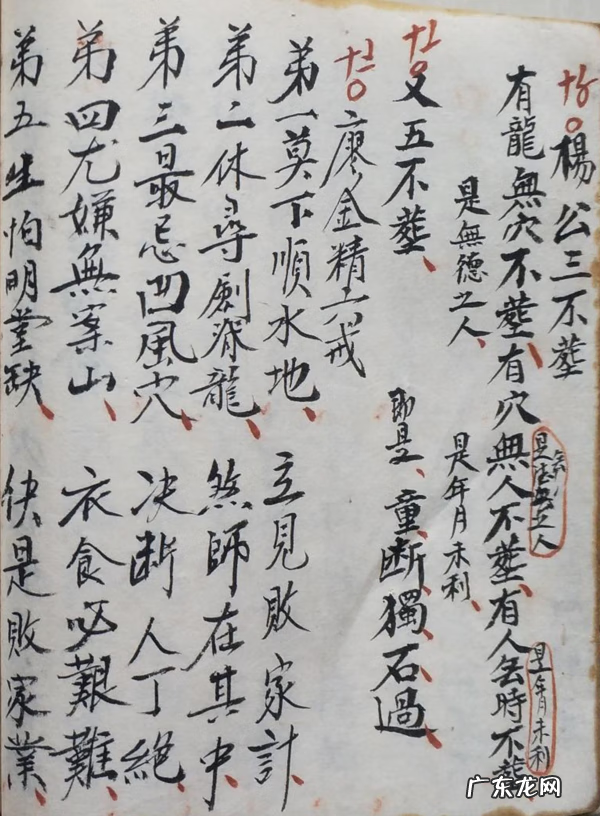 楊公三不塟
有龍無穴不塟、有穴無人不塟、有人無時不塟
是無德之人
是年月未利
是無德之人、
是年月未利、
又五不塟、
即是、童、断、獨、石、過、
廖金精六戒
弟一莫下順水地、立見敗家計、
弟二休尋劍脊龍、煞師在其中、
弟三最忌凹風穴、决断人丁絕、
弟四尤嫌無案山、衣食必艱難、
弟五生怕明堂缺、快是敗家業、
广东龙网